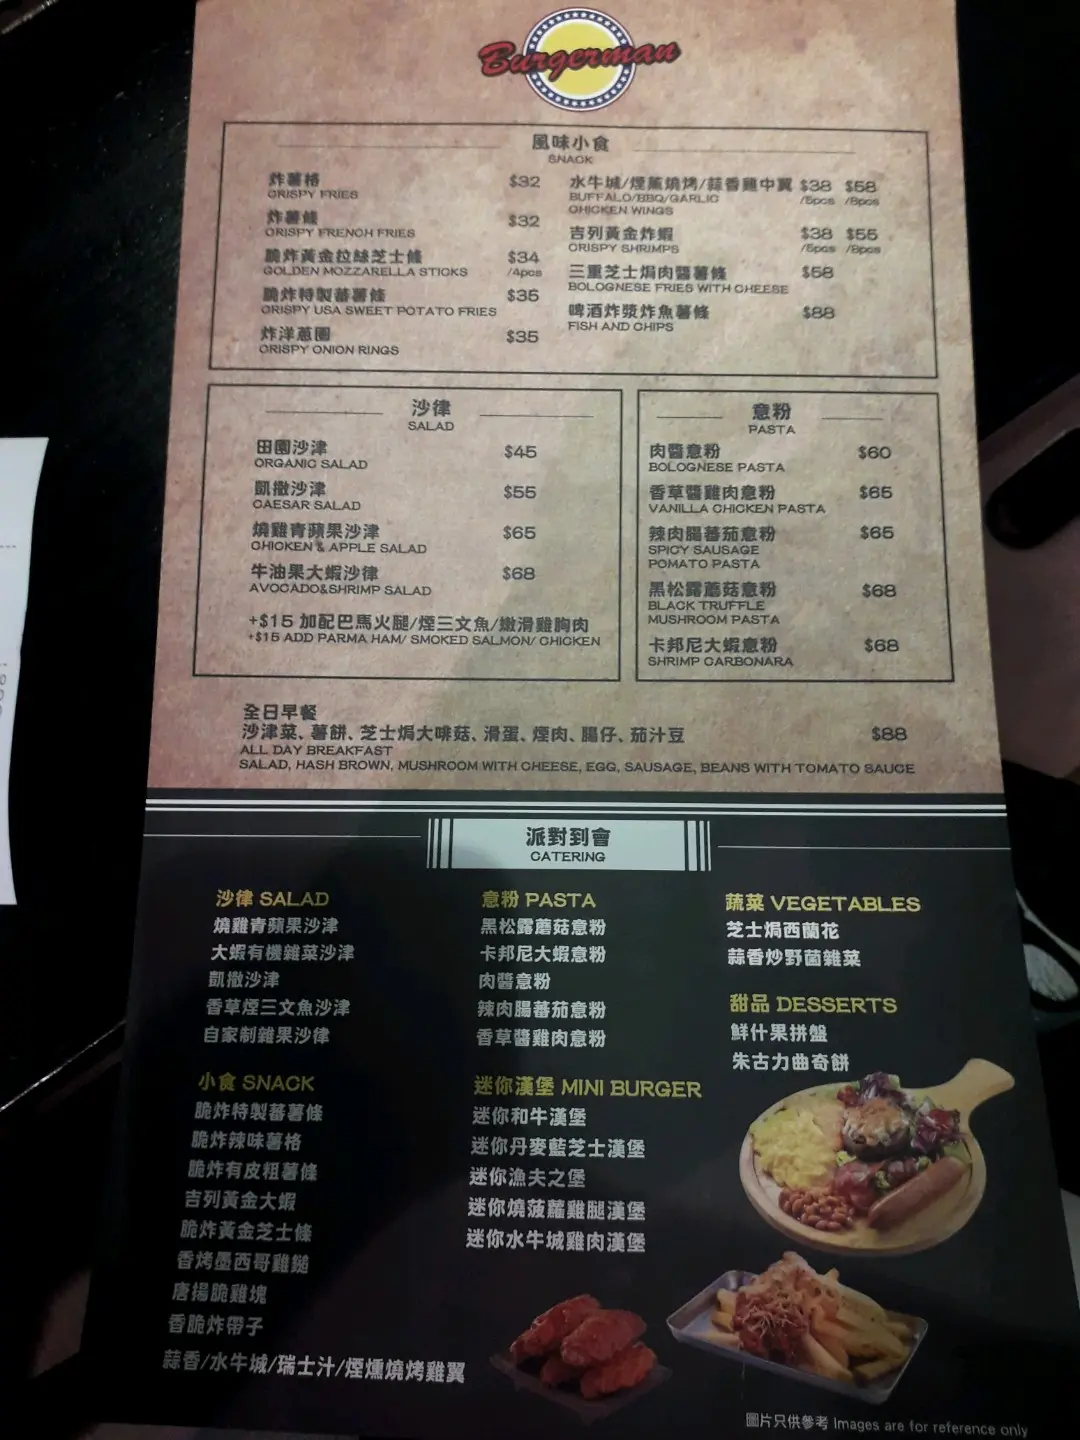 Burgerman
風味小食
SNACK
炸薯格 $32
CRISPY FRIES
炸薯條 $32
CRISPY FRENCH FRIES
脆炸黃金拉絲芝士條 $34
GOLDEN MOZZARELLA STICKS /4pcs
脆炸特製蕃薯條 $35
CRISPY USA SWEET POTATO FRIES
炸洋蔥圈 $35
CRISPY ONION RINGS
水牛城/煙薰燒烤/蒜香雞中翼 $38 $58
BUFFALO/BBQ/GARLIC /5pcs /8pcs
CHICKEN WINGS
吉列黃金炸蝦 $38 $55
CRISPY SHRIMPS /5pcs /8pcs
三重芝士焗肉醬薯條 $58
BOLOGNESE FRIES WITH CHEESE
啤酒炸漿炸魚薯條 $88
FISH AND CHIPS
沙律
SALAD
田園沙律 $45
ORGANIC SALAD
凱撒沙律 $55
CAESAR SALAD
燒雞青蘋果沙律 $65
CHICKEN & APPLE SALAD
牛油果大蝦沙律 $68
AVOCADO&SHRIMP SALAD
+$15 加配巴馬火腿/煙三文魚/嫩滑雞胸肉
+$15 ADD PARMA HAM/ SMOKED SALMON/ CHICKEN
意粉
PASTA
肉醬意粉 $60
BOLOGNESE PASTA
香草醬雞肉意粉 $65
VANILLA CHICKEN PASTA
辣肉腸蕃茄意粉 $65
SPICY SAUSAGE
POMATO PASTA
黑松露蘑菇意粉 $68
BLACK TRUFFLE
MUSHROOM PASTA
卡邦尼大蝦意粉 $68
SHRIMP CARBONARA
全日早餐
沙律菜、薯餅、芝士焗大啡菇、滑蛋、煙肉、腸仔、茄汁豆 $88
ALL DAY BREAKFAST
SALAD, HASH BROWN, MUSHROOM WITH CHEESE, EGG, SAUSAGE, BEANS WITH TOMATO SAUCE
派對到會
CATERING
沙律 SALAD
燒雞青蘋果沙律
大蝦有機雜菜沙律
凱撒沙律
香草煙三文魚沙律
自家制雜果沙律
小食 SNACK
脆炸特製蕃薯條
脆炸辣味薯格
脆炸有皮粗薯條
吉列黃金大蝦
脆炸黃金芝士條
香烤墨西哥雞鎚
唐揚脆雞塊
香脆炸帶子
蒜香/水牛城/瑞士汁/煙燻燒烤雞翼
意粉 PASTA
黑松露蘑菇意粉
卡邦尼大蝦意粉
肉醬意粉
辣肉腸蕃茄意粉
香草醬雞肉意粉
迷你漢堡 MINI BURGER
迷你和牛漢堡
迷你丹麥藍芝士漢堡
迷你漁夫之堡
迷你燒菠蘿雞腿漢堡
迷你水牛城雞肉漢堡
蔬菜 VEGETABLES
芝士焗西蘭花
蒜香炒野菌雜菜
甜品 DESSERTS
鮮什果拼盤
朱古力曲奇餅
圖片只供參考 Images are for reference only